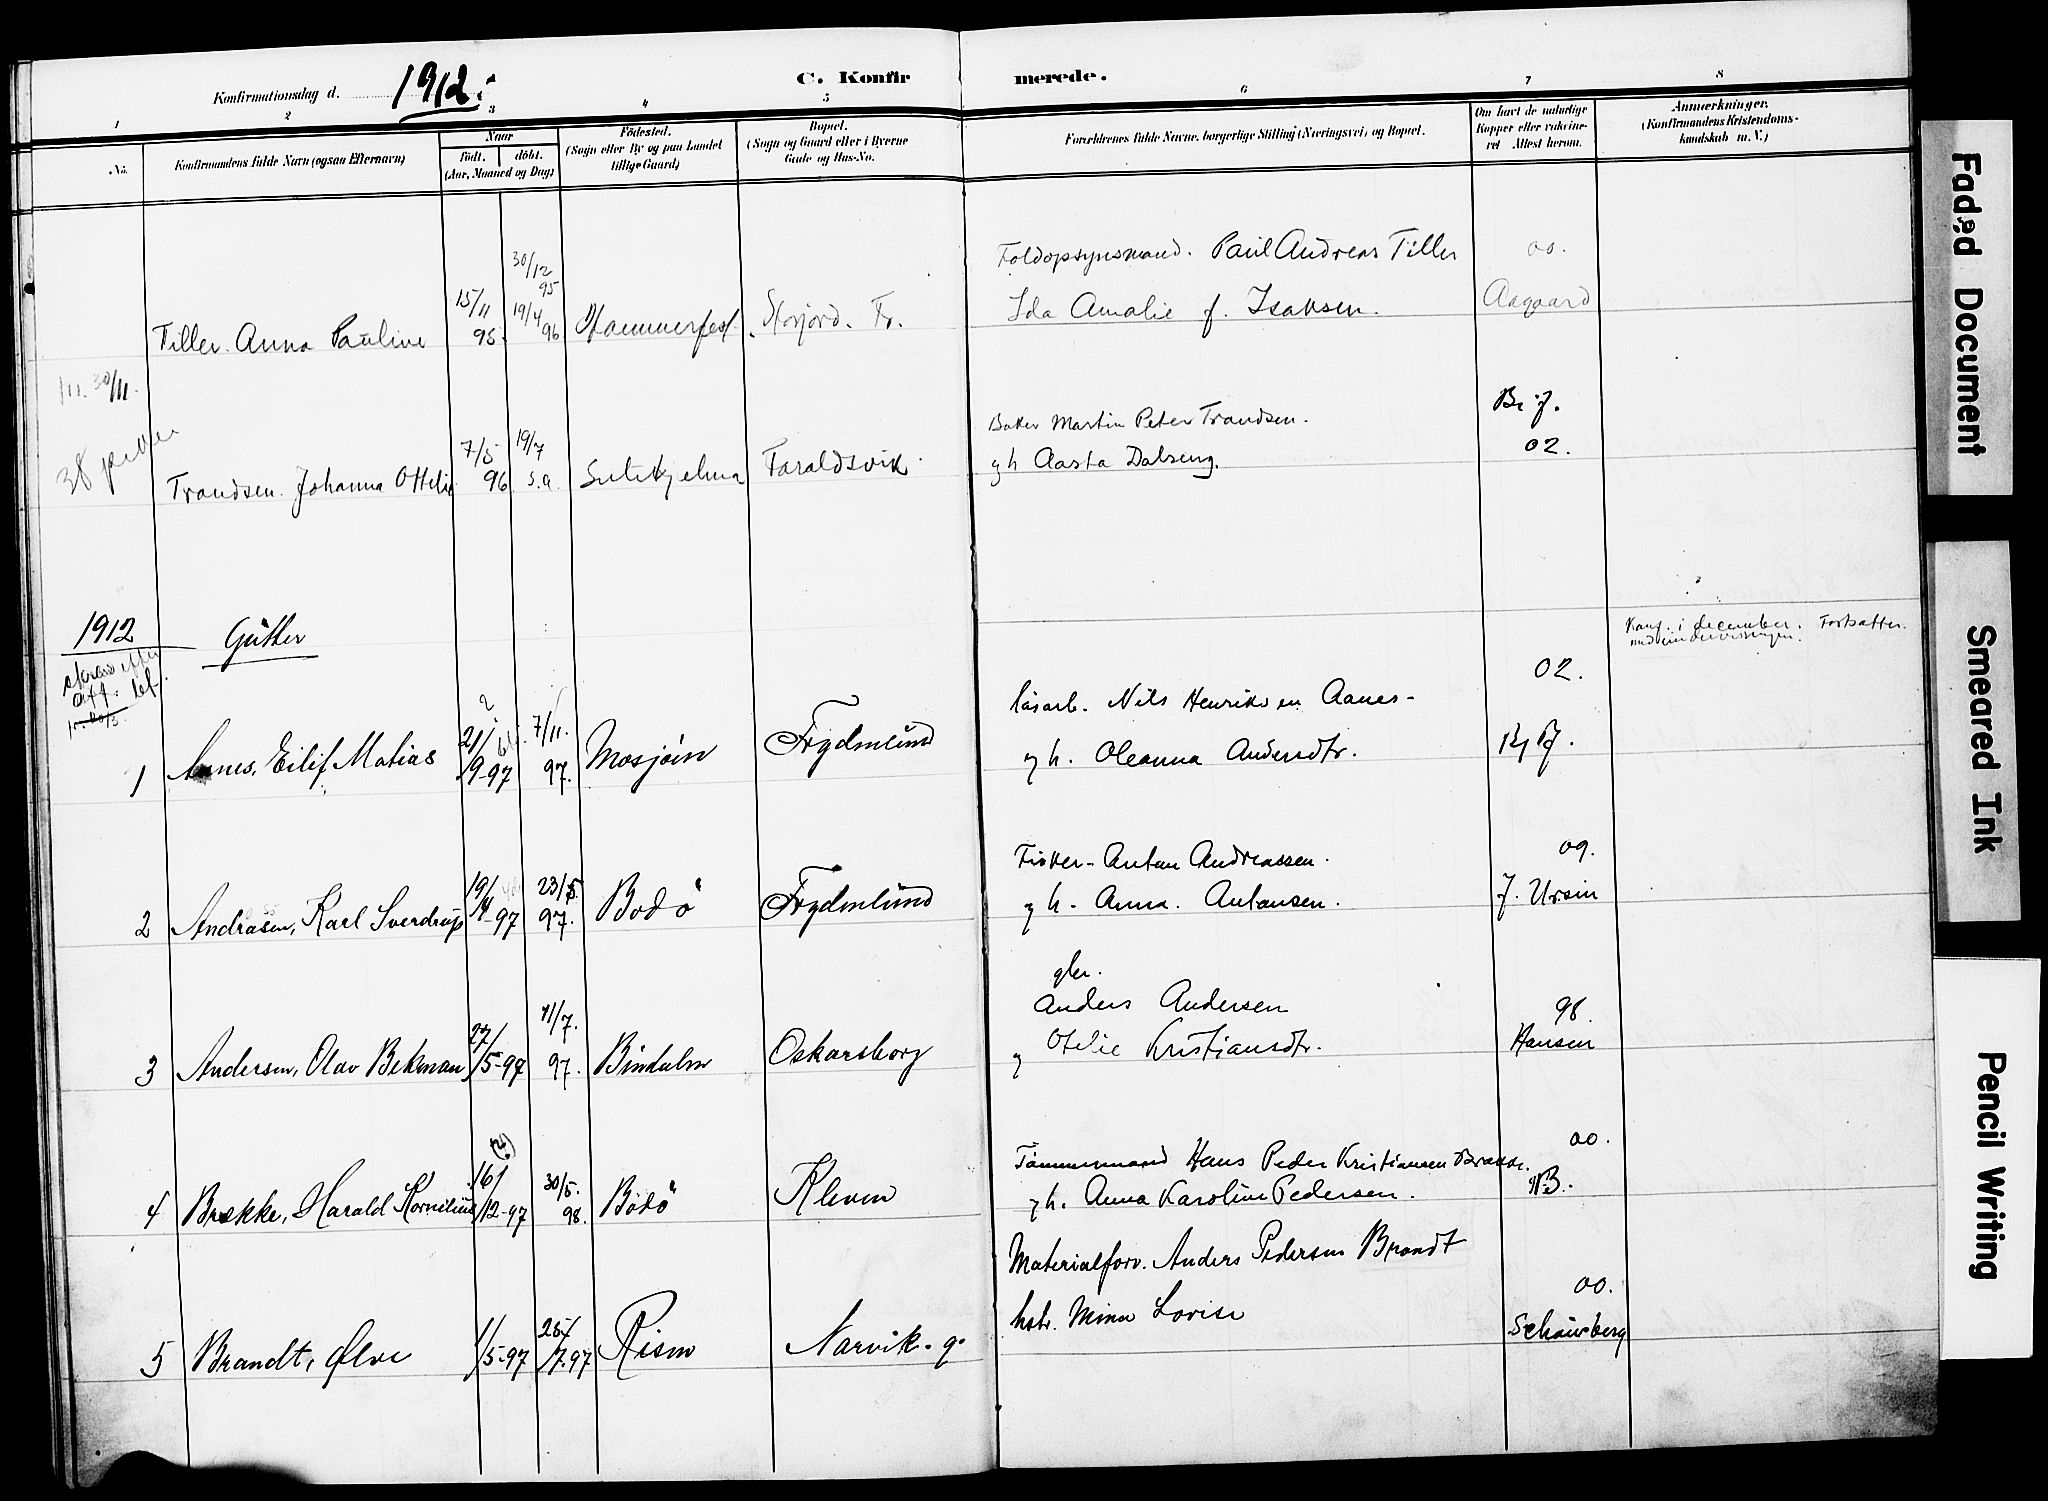 Konfirmationsdag d. 1912
C. Konfirmerede.
1 2 3 4 5 6 7 8
No.
Konfirmandens fulde Navn (ogsaa Efternavn)
Naar
födt. döbt.
(Aar, Maaned og Dag)
Födested.
(Sogn eller By og paa Landet
tillige Gaard)
Bopæl.
(Sogn og Gaard eller i Byerne
Gade og Hus-No.
Forældrenes fulde Navne, borgerlige Stilling (Næringsvei) og Bopæl.
Om havt de naturlige
Kopper eller vakcine-
ret Attest herom.
Anmærkninger.
(Konfirmandens Kristendoms-
kundskab m. V.)
30/12
95
Toldopsynsmand. Paul Andreas Tiller 00.
Tiller. Anna Pauline 15/11 95. 19/4 96 Hammerfest. Storjord. Fr. Ida Amalie f. Isaksen. Aagaard
30/11.
38 piker
Baker Martin Peter Trandsen. Br. J.
Trandsen. Johanna Ottelie 7/5 96 19/7 s.a. Sulitjelma Taraldsvik. g h Aasta Dalseng. 02.
1912 Gutter
Konf. i december. Fortsatter.
02.
løsarb. Nils Henriksen Aanes-
1 Aanes, Eilif Matias 21/9-97 7/11. 97. Mosjøen Frydenlund g h. Oleanna Andersdtr.
Fisker- Anton Andreassen. 09.
2 Andrasen, Karl Sverdrup 19/4 97 23/5. 97. Bodø Frydenlund g h. Anna. Antonsen. J. Ursin
gbr.
Anders Andersen 98.
3 Andersen, Olav Bekman 27/5-97 11/7. 97. Bindalen Oskarsborg g Otelie Kristiansdtr. Hansen
Tømmermand Hans Peder Kristiansen Brække. 00.
4 Brekke, Harald Kornelius 16/12-97 30/5. 98. Bodø Kleven g h. Anna Karoline Pedersen. NB.
Materialforv. Anders Pedersen Brandt 00.
5 Brandt, Ølve 1/5-97 25/7.97 Risøen Narvik. g. hstr. Mina Lovise Schaursberg
Faded Document
Smeared Ink
Pencil Writing